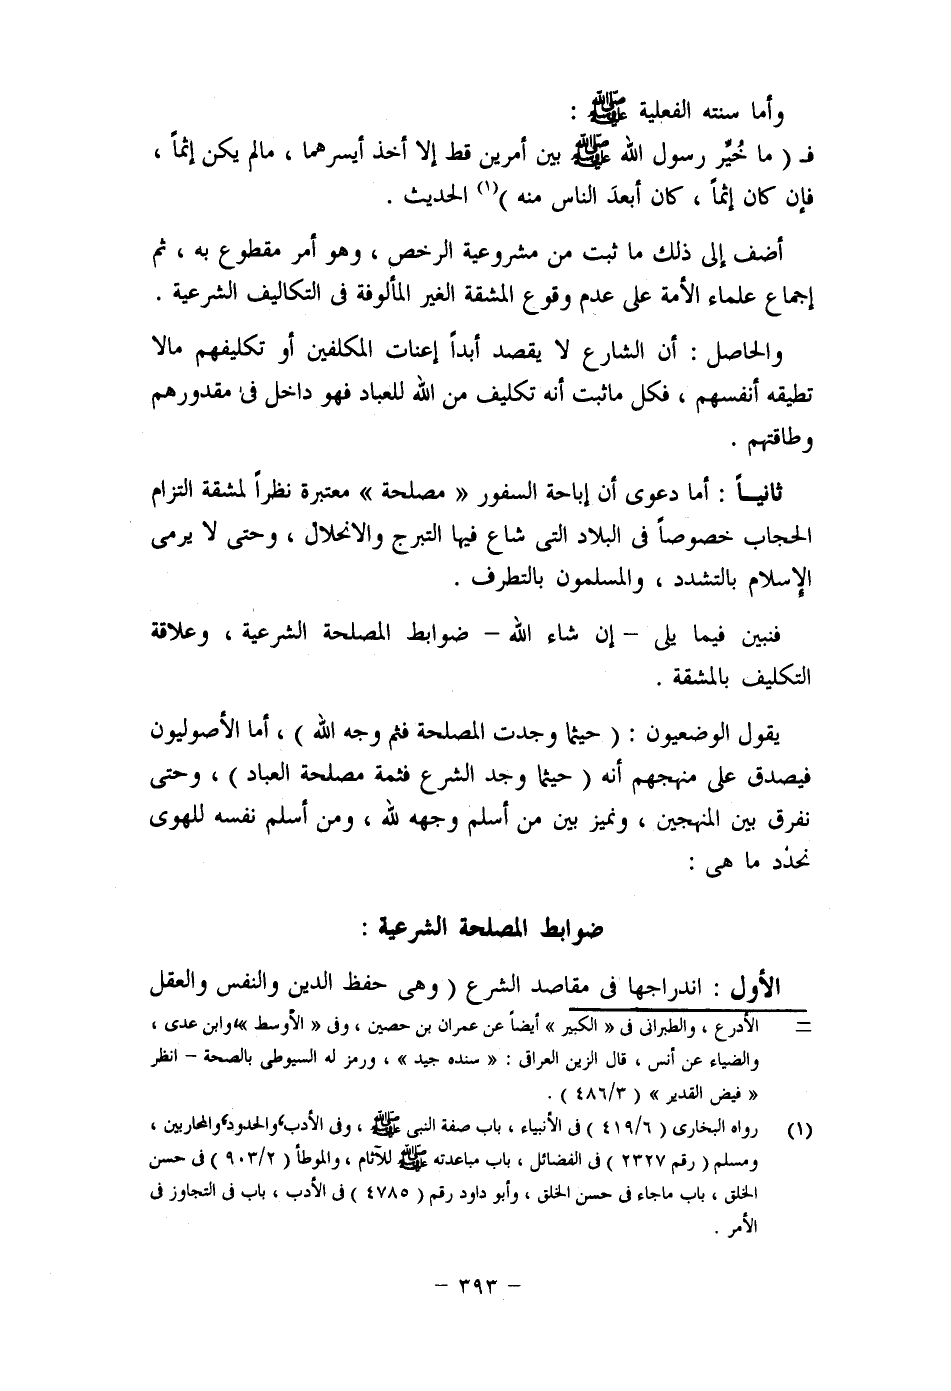 وأما سنته الفعلية ﷺ :
فـ ( ما خُيِّر رسول الله ﷺ بين أمرين قط إلا أخذ أيسرهما ، مالم يكن إثماً ،
فإن كان إثماً ، كان أبعدَ الناس منه )(١) الحديث .
أضف إلى ذلك ما ثبت من مشروعية الرخص ، وهو أمر مقطوع به ، ثم
إجماع علماء الأمة على عدم وقوع المشقة الغير المألوفة فى التكاليف الشرعية .
والحاصل : أن الشارع لا يقصد أبداً إعنات المكلفين أو تكليفهم مالا
تطيقه أنفسهم ، فكل ماثبت أنه تكليف من الله للعباد فهو داخل فى مقدورهم
وطاقتهم .
ثانيـاً : أما دعوى أن إباحة السفور « مصلحة » معتبرة نظراً لمشقة التزام
الحجاب خصوصاً فى البلاد التى شاع فيها التبرج والانحلال ، وحتى لا يرمى
الإسلام بالتشدد ، والمسلمون بالتطرف .
فنبين فيما يلى – إن شاء الله – ضوابط المصلحة الشرعية ، وعلاقة
التكليف بالمشقة .
يقول الوضعيون : ( حيثما وجدت المصلحة فثم وجه الله ) ، أما الأصوليون
فيصدق على منهجهم أنه ( حيثما وجد الشرع فثمة مصلحة العباد ) ، وحتى
نفرق بين المنهجين ، ونميز بين من أسلم وجهه لله ، ومن أسلم نفسه للهوى
نحدّد ما هى :
ضوابط المصلحة الشرعية :
الأول : اندراجها فى مقاصد الشرع ( وهى حفظ الدين والنفس والعقل
= الأدرع ، والطبرانى فى « الكبير » أيضاً عن عمران بن حصين ، وفى « الأوسط » ، وابن عدى ،
والضياء عن أنس ، قال الزين العراقى : « سنده جيد » ، ورمز له السيوطى بالصحة – انظر
« فيض القدير » ( ٤٨٦/٣ ) .
(١) رواه البخارى ( ٤١٩/٦ ) فى الأنبياء ، باب صفة النبى ﷺ ، وفى الأدب ، والحدود ، والمحاربين ،
ومسلم ( رقم ٢٣٢٧ ) فى الفضائل ، باب مباعدته ﷺ للآثام ، والموطأ ( ٩٠٣/٢ ) فى حسن
الخلق ، باب ماجاء فى حسن الخلق ، وأبو داود رقم ( ٤٧٨٥ ) فى الأدب ، باب فى التجاوز فى
الأمر .
– ٣٩٣ –